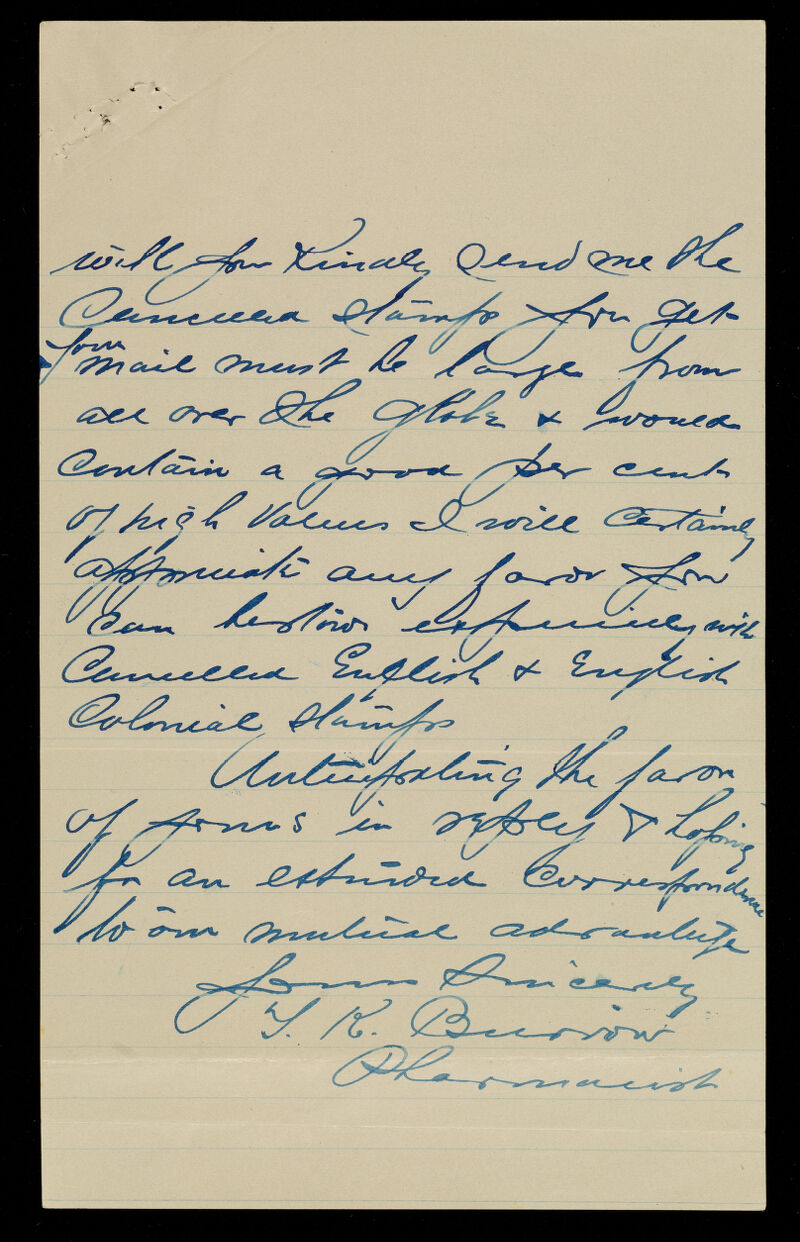 will you Kindly Send me the
Cancelled Stamps you get
your
mail must be large from
all over the Globe & would
Contain a good per cent
of high Values I will Certainly
appreciate any favor you
can bestow especially with
Cancelled English & English
Colonial Stamps
Anticipating the favor
of yours in reply & hoping
for an extended Correspondence
to our mutual advantage
Yours Sincerely
T. K. Burrow
Pharmacist